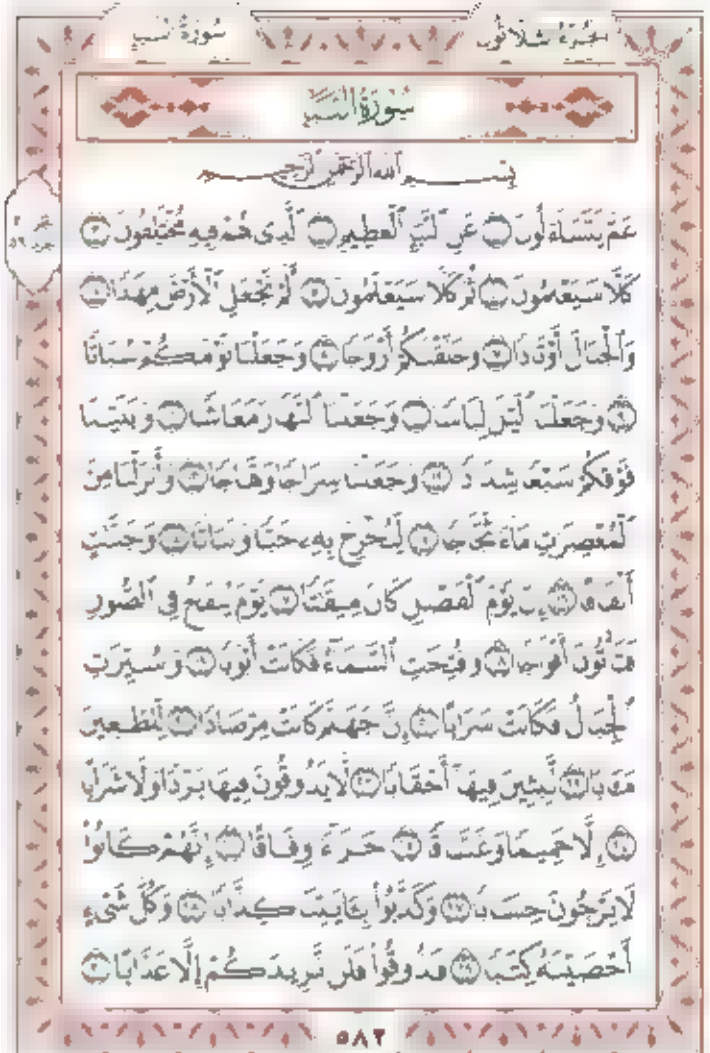 سُورَةُ النَّبَإِ
الجُزْءُ الثَّلَاثُونَ
سُورَةُ النَّبَإِ
بِسْمِ ٱللَّهِ ٱلرَّحْمَٰنِ ٱلرَّحِيمِ
عَمَّ يَتَسَآءَلُونَ ١ عَنِ ٱلنَّبَإِ ٱلْعَظِيمِ ٢ ٱلَّذِى هُمْ فِيهِ مُخْتَلِفُونَ ٣
كَلَّا سَيَعْلَمُونَ ٤ ثُمَّ كَلَّا سَيَعْلَمُونَ ٥ أَلَمْ نَجْعَلِ ٱلْأَرْضَ مِهَٰدًا ٦
وَٱلْجِبَالَ أَوْتَادًا ٧ وَخَلَقْنَٰكُمْ أَزْوَٰجًا ٨ وَجَعَلْنَا نَوْمَكُمْ سُبَاتًا
٩ وَجَعَلْنَا ٱلَّيْلَ لِبَاسًا ١٠ وَجَعَلْنَا ٱلنَّهَارَ مَعَاشًا ١١ وَبَنَيْنَا
فَوْقَكُمْ سَبْعًا شِدَادًا ١٢ وَجَعَلْنَا سِرَاجًا وَهَّاجًا ١٣ وَأَنزَلْنَا مِنَ
ٱلْمُعْصِرَٰتِ مَآءً ثَجَّاجًا ١٤ لِّنُخْرِجَ بِهِۦ حَبًّا وَنَبَاتًا ١٥ وَجَنَّٰتٍ
أَلْفَافًا ١٦ إِنَّ يَوْمَ ٱلْفَصْلِ كَانَ مِيقَٰتًا ١٧ يَوْمَ يُنفَخُ فِى ٱلصُّورِ
فَتَأْتُونَ أَفْوَاجًا ١٨ وَفُتِحَتِ ٱلسَّمَآءُ فَكَانَتْ أَبْوَٰبًا ١٩ وَسُيِّرَتِ
ٱلْجِبَالُ فَكَانَتْ سَرَابًا ٢٠ إِنَّ جَهَنَّمَ كَانَتْ مِرْصَادًا ٢١ لِّلطَّٰغِينَ
مَـَٔابًا ٢٢ لَّٰبِثِينَ فِيهَآ أَحْقَابًا ٢٣ لَّا يَذُوقُونَ فِيهَا بَرْدًا وَلَا شَرَابًا
٢٤ إِلَّا حَمِيمًا وَغَسَّاقًا ٢٥ جَزَآءً وِفَاقًا ٢٦ إِنَّهُمْ كَانُوا۟
لَا يَرْجُونَ حِسَابًا ٢٧ وَكَذَّبُوا۟ بِـَٔايَٰتِنَا كِذَّابًا ٢٨ وَكُلَّ شَىْءٍ
أَحْصَيْنَٰهُ كِتَٰبًا ٢٩ فَذُوقُوا۟ فَلَن نَّزِيدَكُمْ إِلَّا عَذَابًا ٣٠
٥٨٢